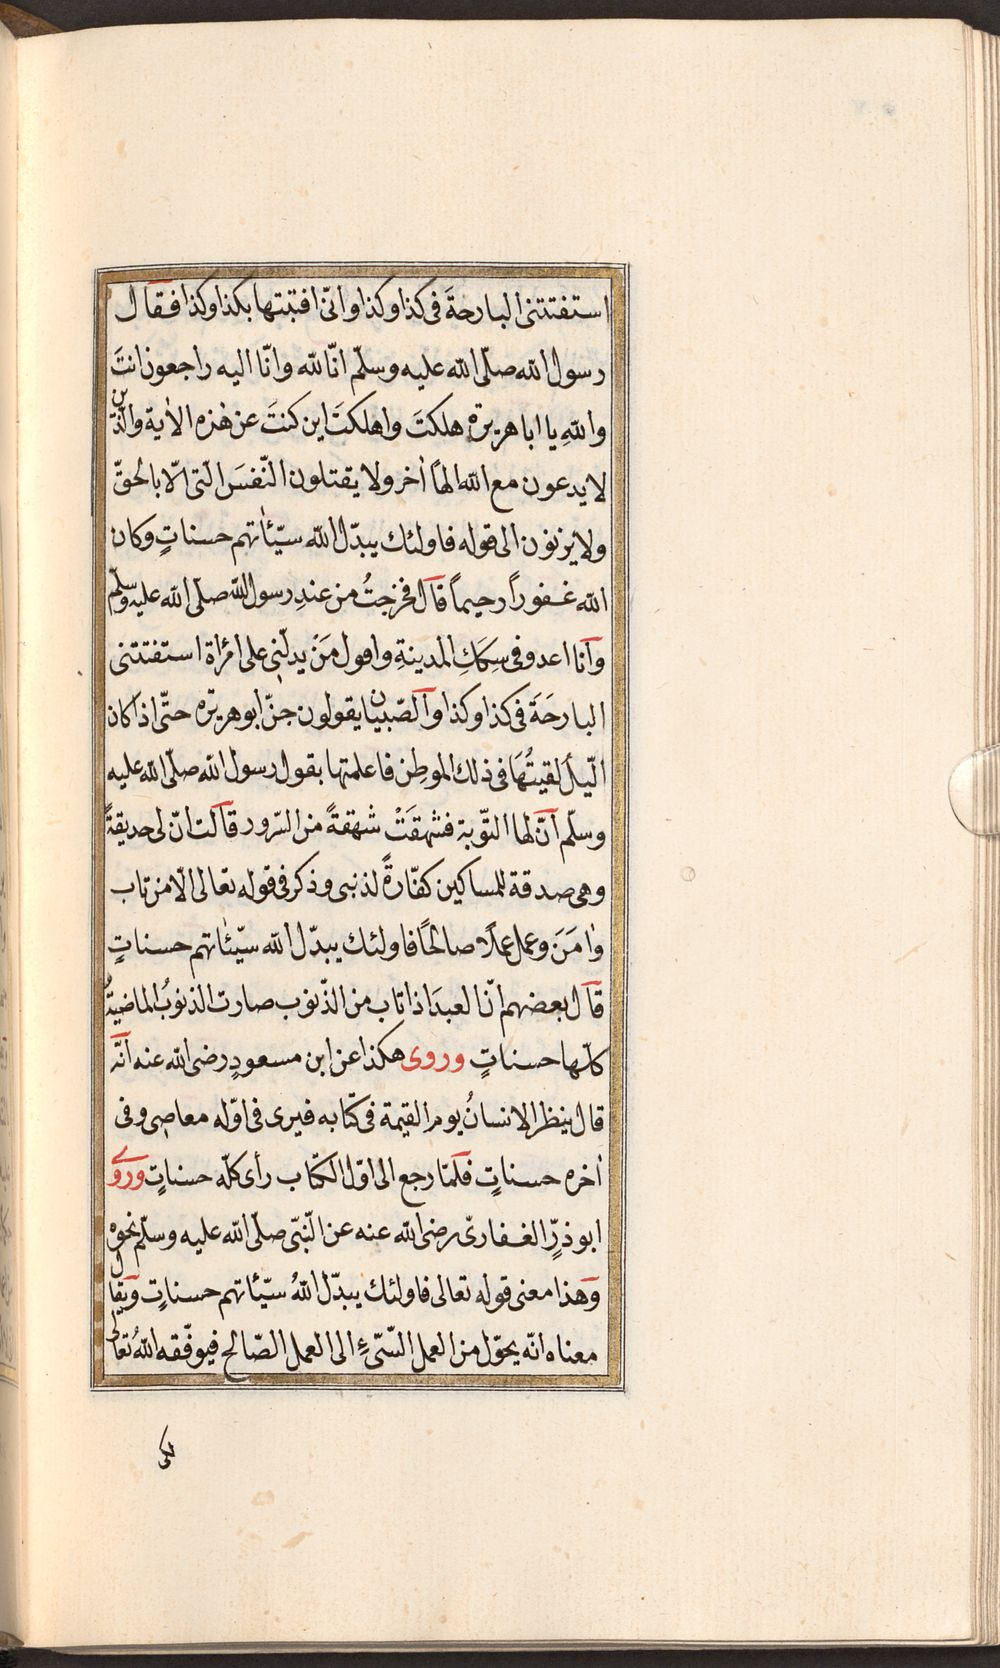 استفتتنى البارحةَ فى كذا وكذا وانّى افتيتها بكذا وكذا فقال
رسول الله صلّى الله عليه وسلّم انّا لله وانّا اليه راجعون انتَ
واللهِ يا ابا هريرة هلكتَ واهلكتَ اين كنتَ عن هٰذه الاٰية والّذين
لا يدعون مع الله الهًا اٰخر ولا يقتلون النّفسَ الّتى الّا بالحقّ
ولا يزنون الى قوله فاولئك يبدّل الله سيّئاٰتهم حسناتٍ وكان
الله غفوراً رحيماً قال فخرجتُ من عندِ رسول الله صلّى الله عليه وسلّم
وانا اعدو فى سِكَكِ المدينةِ واقول مَنَ يدلّنى على امرٔاة استفتتنى
البارحَةَ فى كذا وكذا والصّبيان يقولون جنّ ابو هريرة حتّى اذا كان
الّيلَ لقيتُهَا فى ذلك الموطِن فاعلمتها بقول رسول الله صلّى الله عليه
وسلّم انّ لها التّوبة فشهقَتْ شهقةً من السّرور قالت انّ لى حديقةً
وهى صدقة للمساكين كفّارةً لذنبى وذكر فى قوله تعالى الّا من تاب
واٰمَنَ وعمل عملًا صالحًا فاولئك يبدّل الله سيّئاٰتهم حسناتٍ
قال بعضهم انّ العبدَ اذا تاب من الذّنوب صارت الذنوبُ الماضيةُ
كلّها حسناتٍ وروى هكذا عن ابن مسعودٍ رضى الله عنه انّه
قال ينظر الانسانُ يوم القيمة فى كتابه فيرى فى اوّله معاصى وفى
اٰخره حسناتٍ فلمّا رجع الى اوّل الكتاب رأى كلّه حسناتٍ وروى
ابو ذرٍّ الغفارىّ رضى الله عنه عن النّبىّ صلّى الله عليه وسلّم نحوه
وهذا معنى قوله تعالى فاولئك يبدّل اللهُ سيّئاتهم حسناتٍ ويقال
معناه انّه يحوّل من العمل السّىّءِ الى العمل الصّالح فيوفّقه اللهُ تعالى